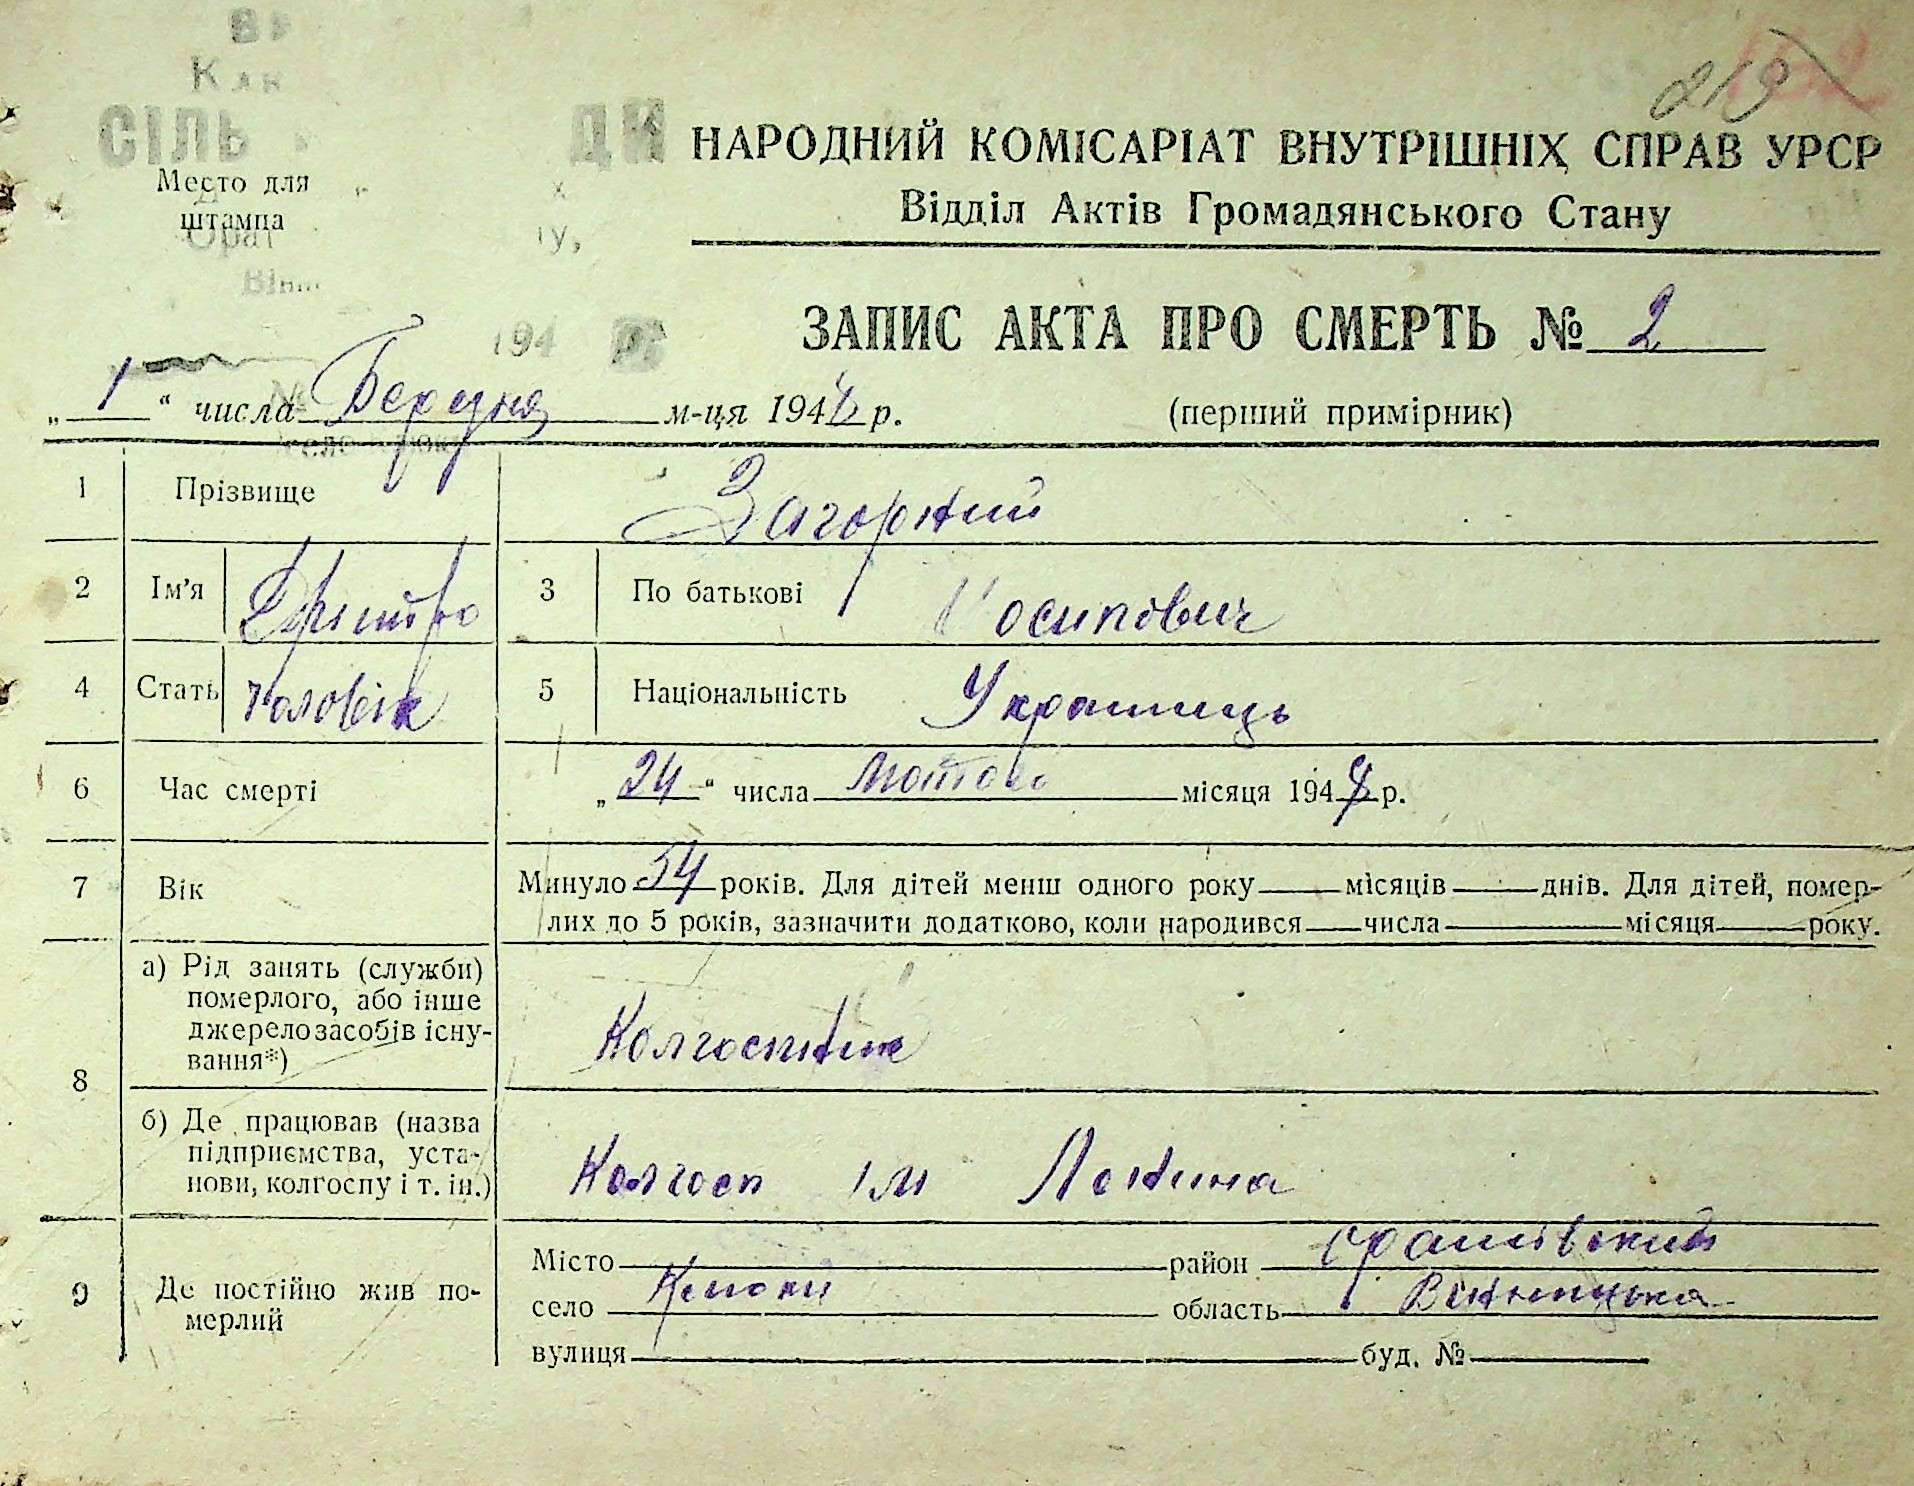 219
СІЛЬ ДИ
НАРОДНИЙ КОМІСАРІАТ ВНУТРІШНІХ СПРАВ УРСР
Место для штампа
Відділ Актів Громадянського Стану
194
ЗАПИС АКТА ПРО СМЕРТЬ № 2
„ 1 “ числа Березня м-ця 1944 р. (перший примірник)
1 Прізвище Загорний
2 Ім'я Дмитро 3 По батькові Йосипович
4 Стать Чоловік 5 Національність Українець
6 Час смерті „ 24 “ числа Лютого місяця 1944 р.
7 Вік Минуло 54 років. Для дітей менш одного року місяців днів. Для дітей, помер-
лих до 5 років, зазначити додатково, коли народився числа місяця року.
8 а) Рід занять (служби)
померлого, або інше
джерело засобів існу-
вання*)
Колгоспник
б) Де працював (назва
підприємства, уста-
нови, колгоспу і т. ін.)
Колгосп ім Леніна
9 Де постійно жив по-
мерлий
Місто район
село область Вінницька
вулиця буд. №